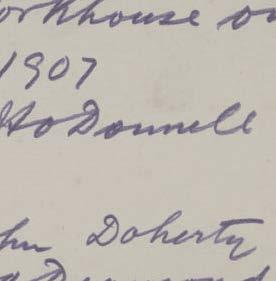 orkhouse on
1907
HO'Donnell
hn Doherty